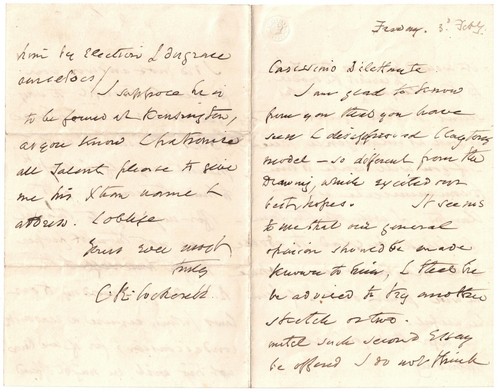 Friday. 3d Feby.
Carissimo Dilettante
I am glad to know
from you that you have
seen & disapproved Clayton's
model – so different from the
Drawing, which excited our
best hopes. It seems
to me that our general
opinion should be made
known to him, & that he
be advised to try another
sketch or two.
until such second Essay
be offered I do not think
him by Election & disgrace
ourselves/
I suppose he is
to be found at Kensington,
as you know I patronise
all Talent please to give
me his Xtian name &
address. & oblige
Yours ever most
truly
C R Cockerell